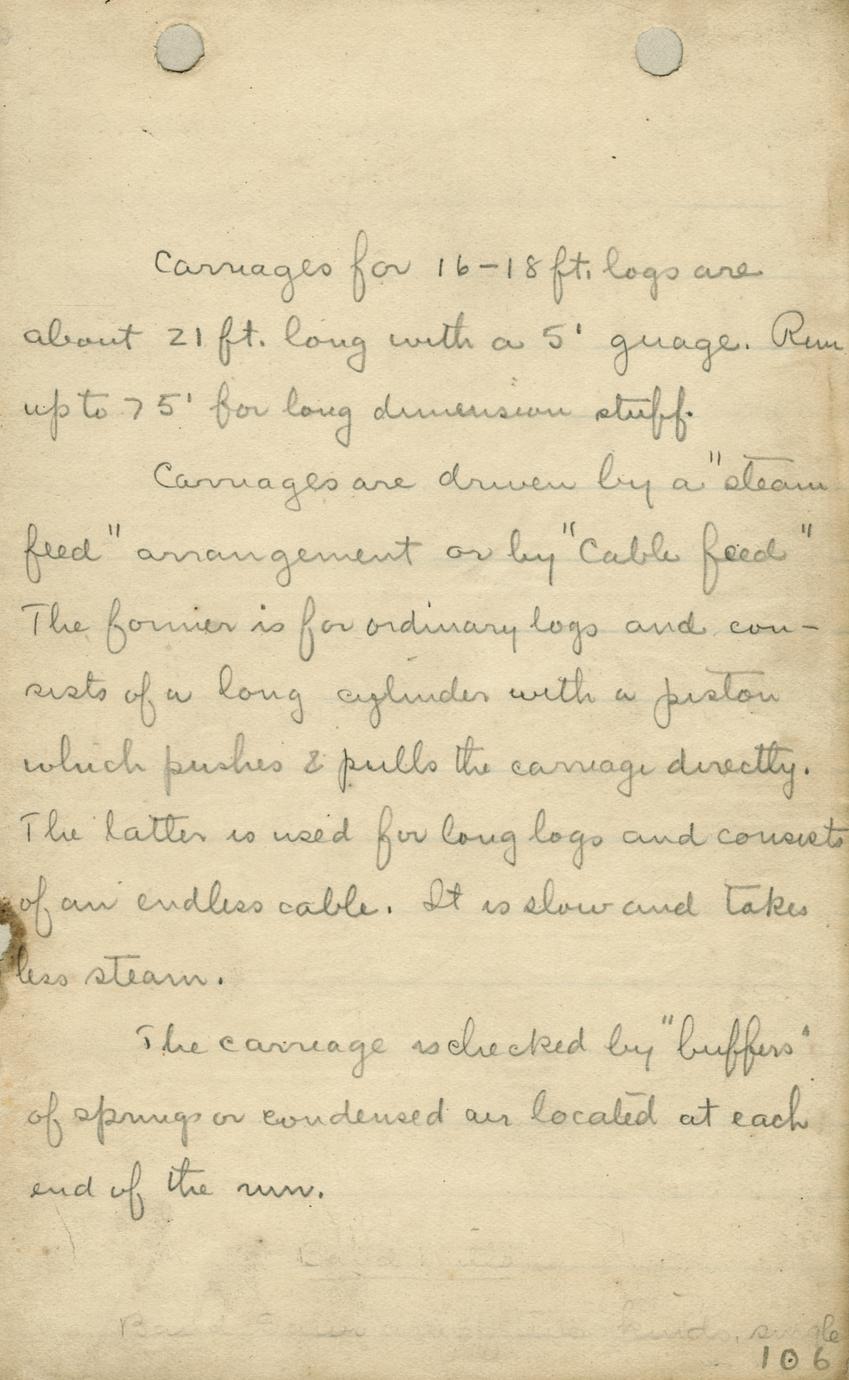 Carriages for 16-18 ft. logs are
about 21 ft. long with a 5' guage. Run
up to 75' for long dimension stuff.
Carriages are driven by a "steam
feed" arrangement or by "Cable feed"
The former is for ordinary logs and con-
sists of a long cylinder with a piston
which pushes & pulls the carriage directly.
The latter is used for long logs and consists
of an endless cable. It is slow and takes
less steam.
The carriage is checked by "buffers"
of springs or condensed air located at each
end of the run.
Band Mills
Band kinds, single
106